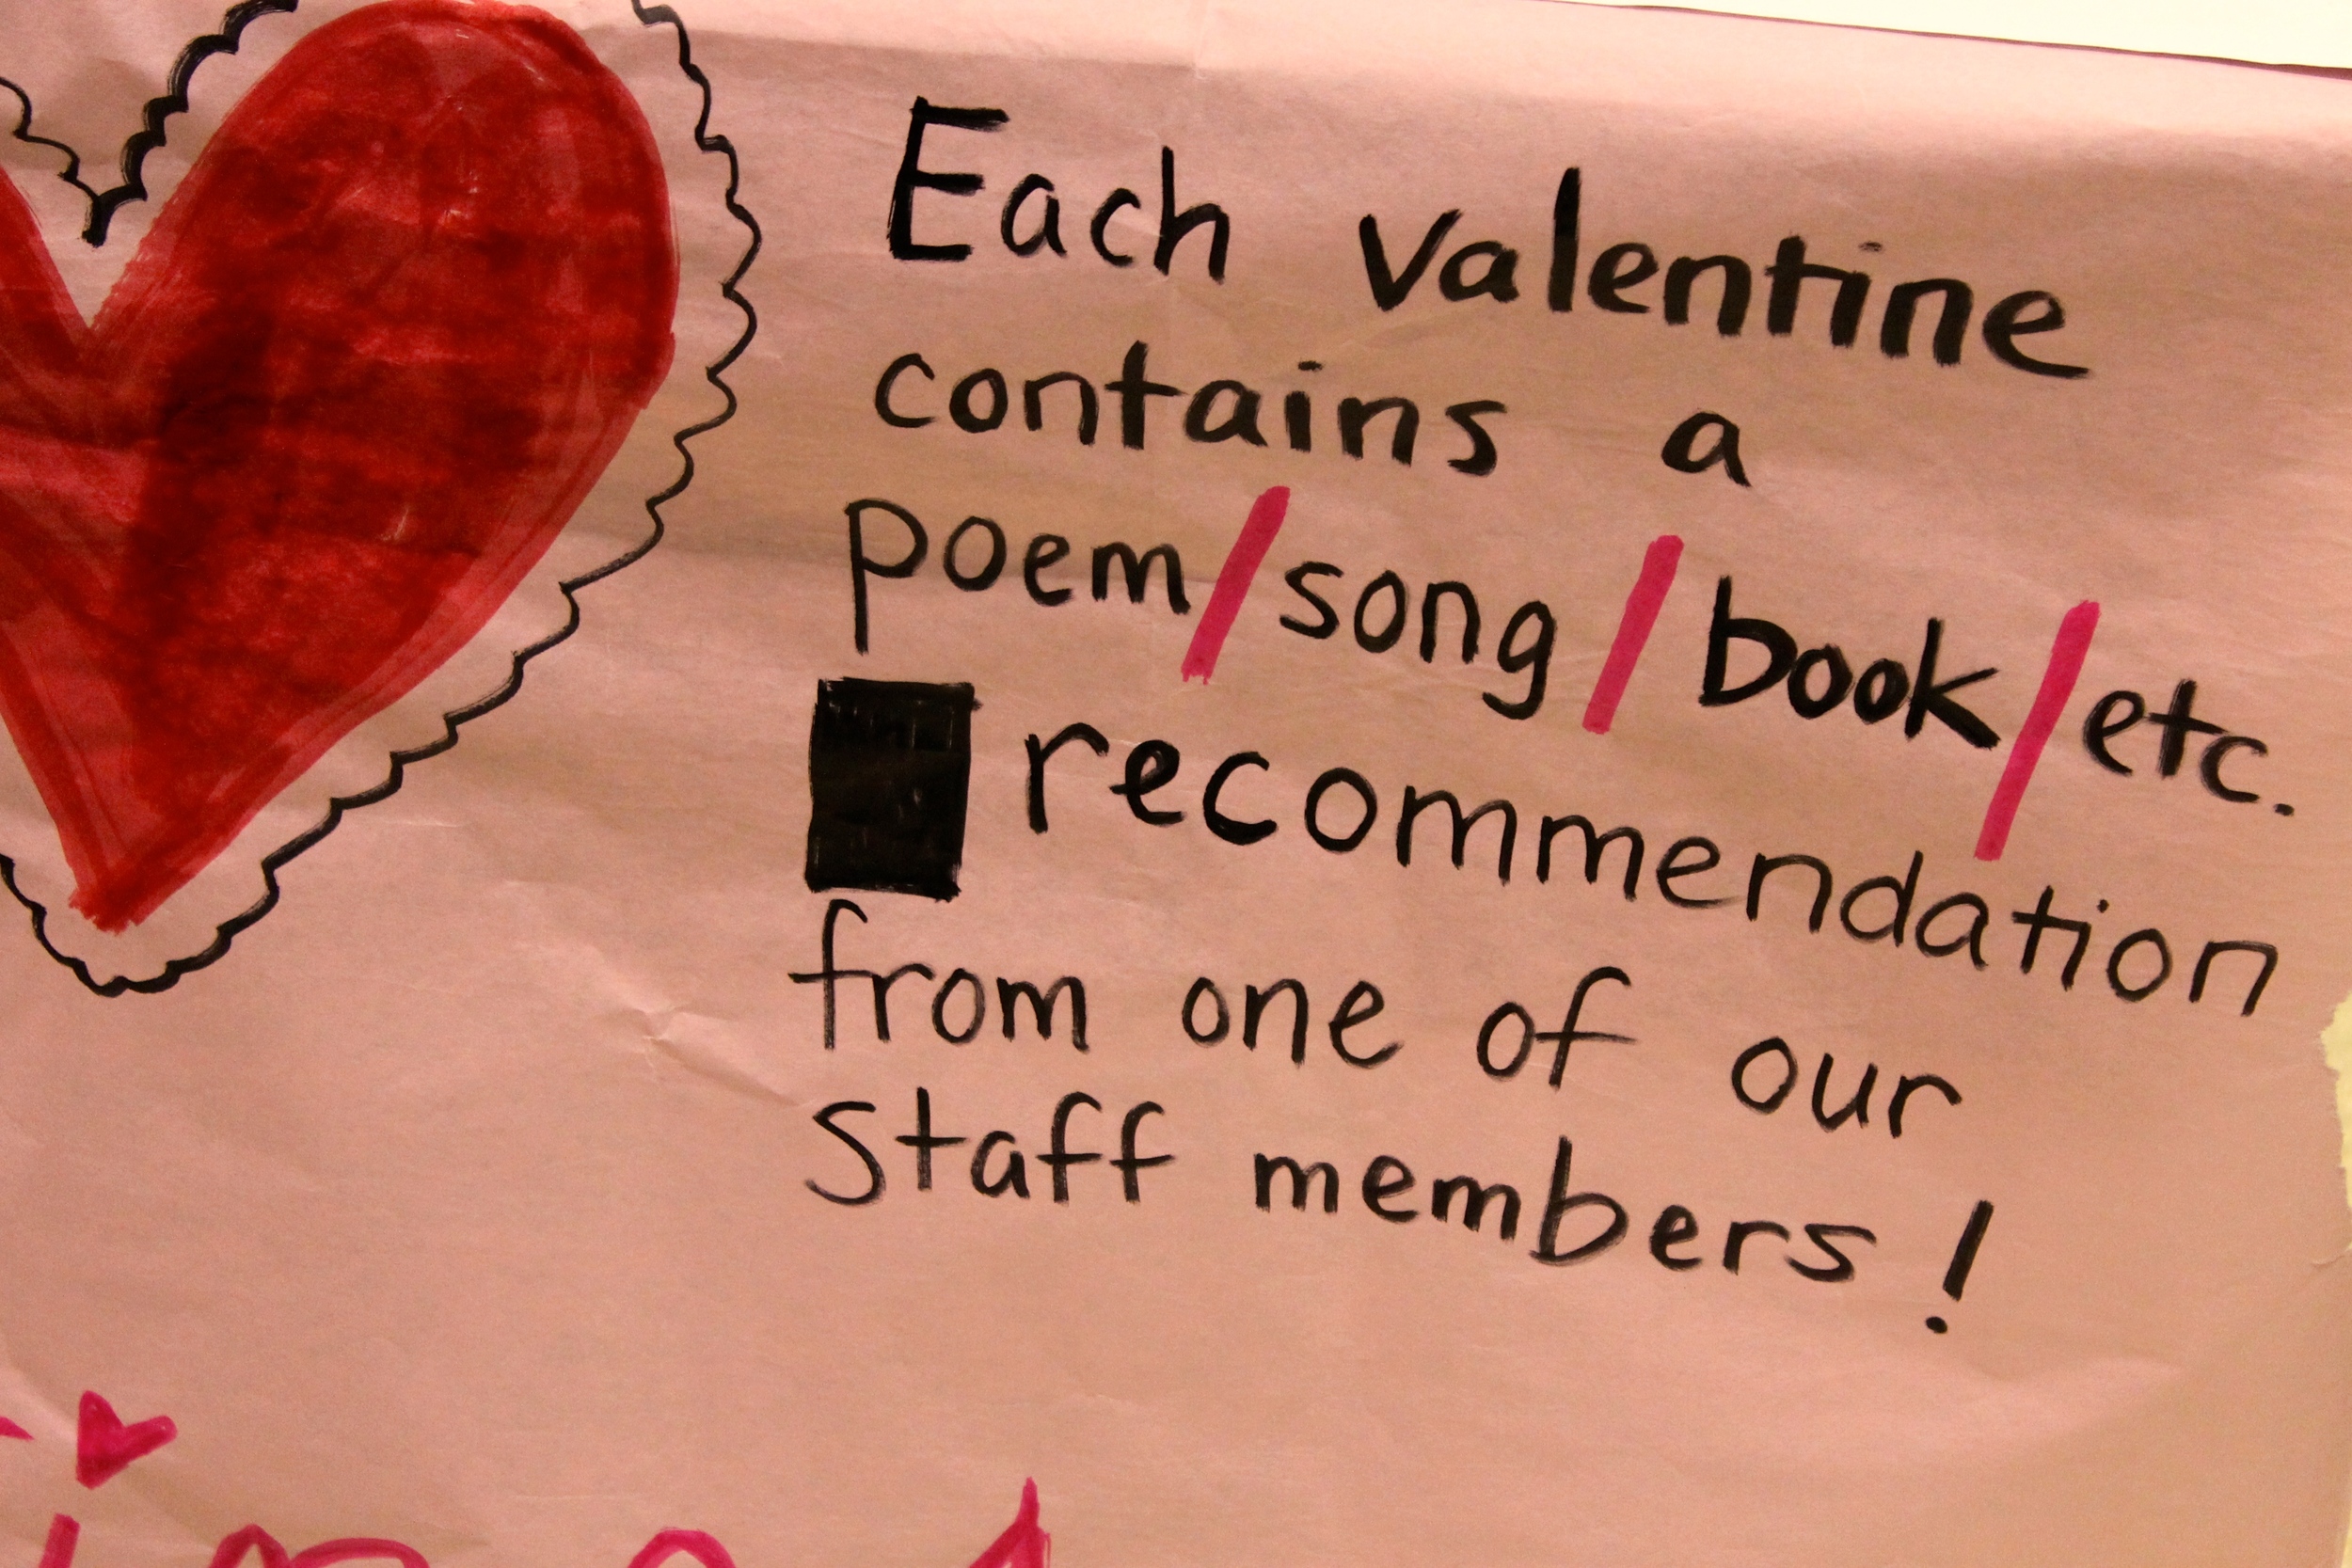 Each valentine
contains a
poem/song/book/etc.
recommendation
from one of our
staff members!